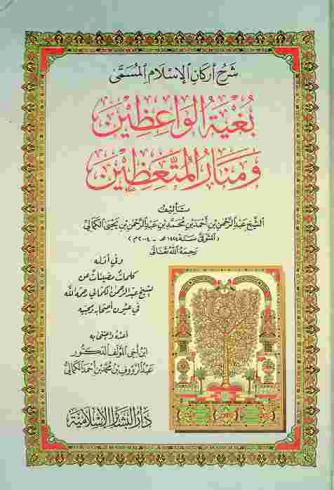 شرح أركان الإسلام المسمى
بغية الواعظين
ومنار المتعظين
تأليف
الشيخ عبد الرحمن بن أحمد بن محمد بن عبد الرحمن بن يحيى الكمالي
رحمه الله تعالى
وفي أوله
كلمات مضيئات عن
الشيخ عبد الرحمن الكمالي رحمه الله
في عيون أصحابه ومحبيه
أعده واعتنى به
ابن أخي المؤلف الدكتور
عبد الرؤوف بن محمد بن أحمد الكمالي
دار البشائر الإسلامية